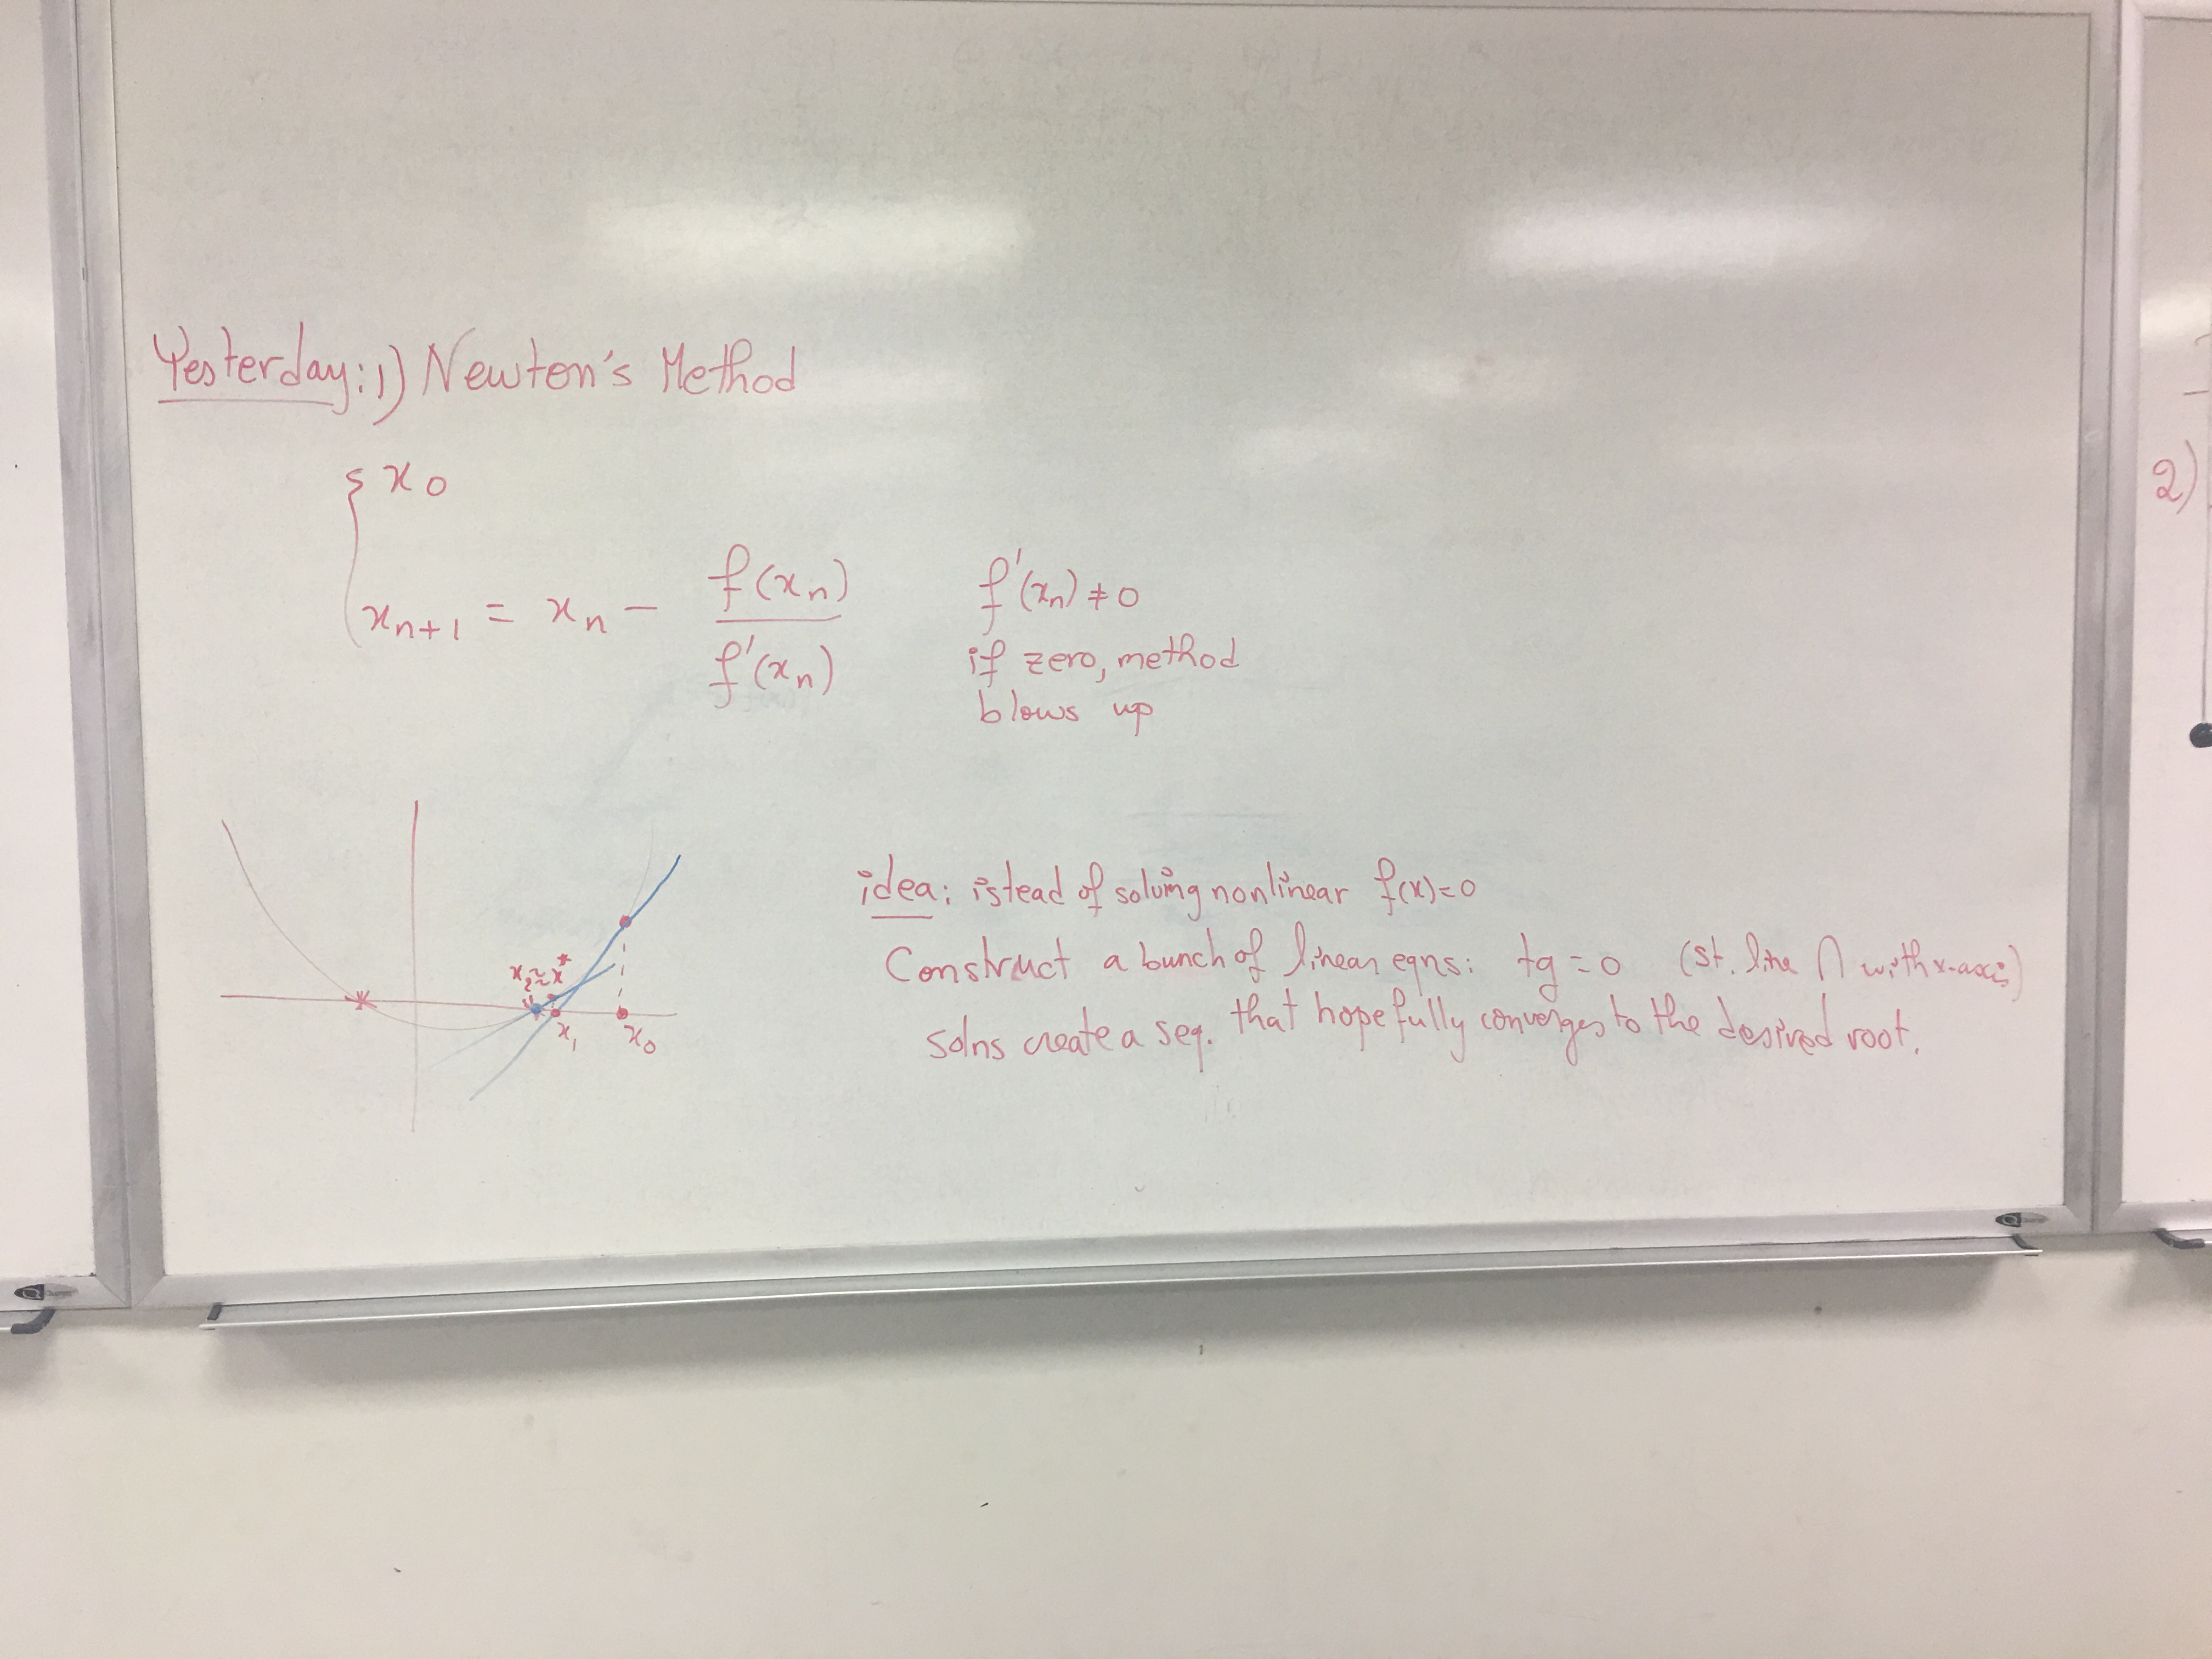 Yesterday: 1) Newton's Method
x₀
xₙ₊₁ = xₙ − f(xₙ) / f'(xₙ)
f'(xₙ) ≠ 0
if zero, method
blows up
x₂ ≈ x*
x₁
x₀
idea: istead of solving nonlinear f(x)=0
Construct a bunch of linear eqns: tg = 0 (st. line ∩ with x-axis)
solns create a seq. that hopefully converges to the desired root.
2)